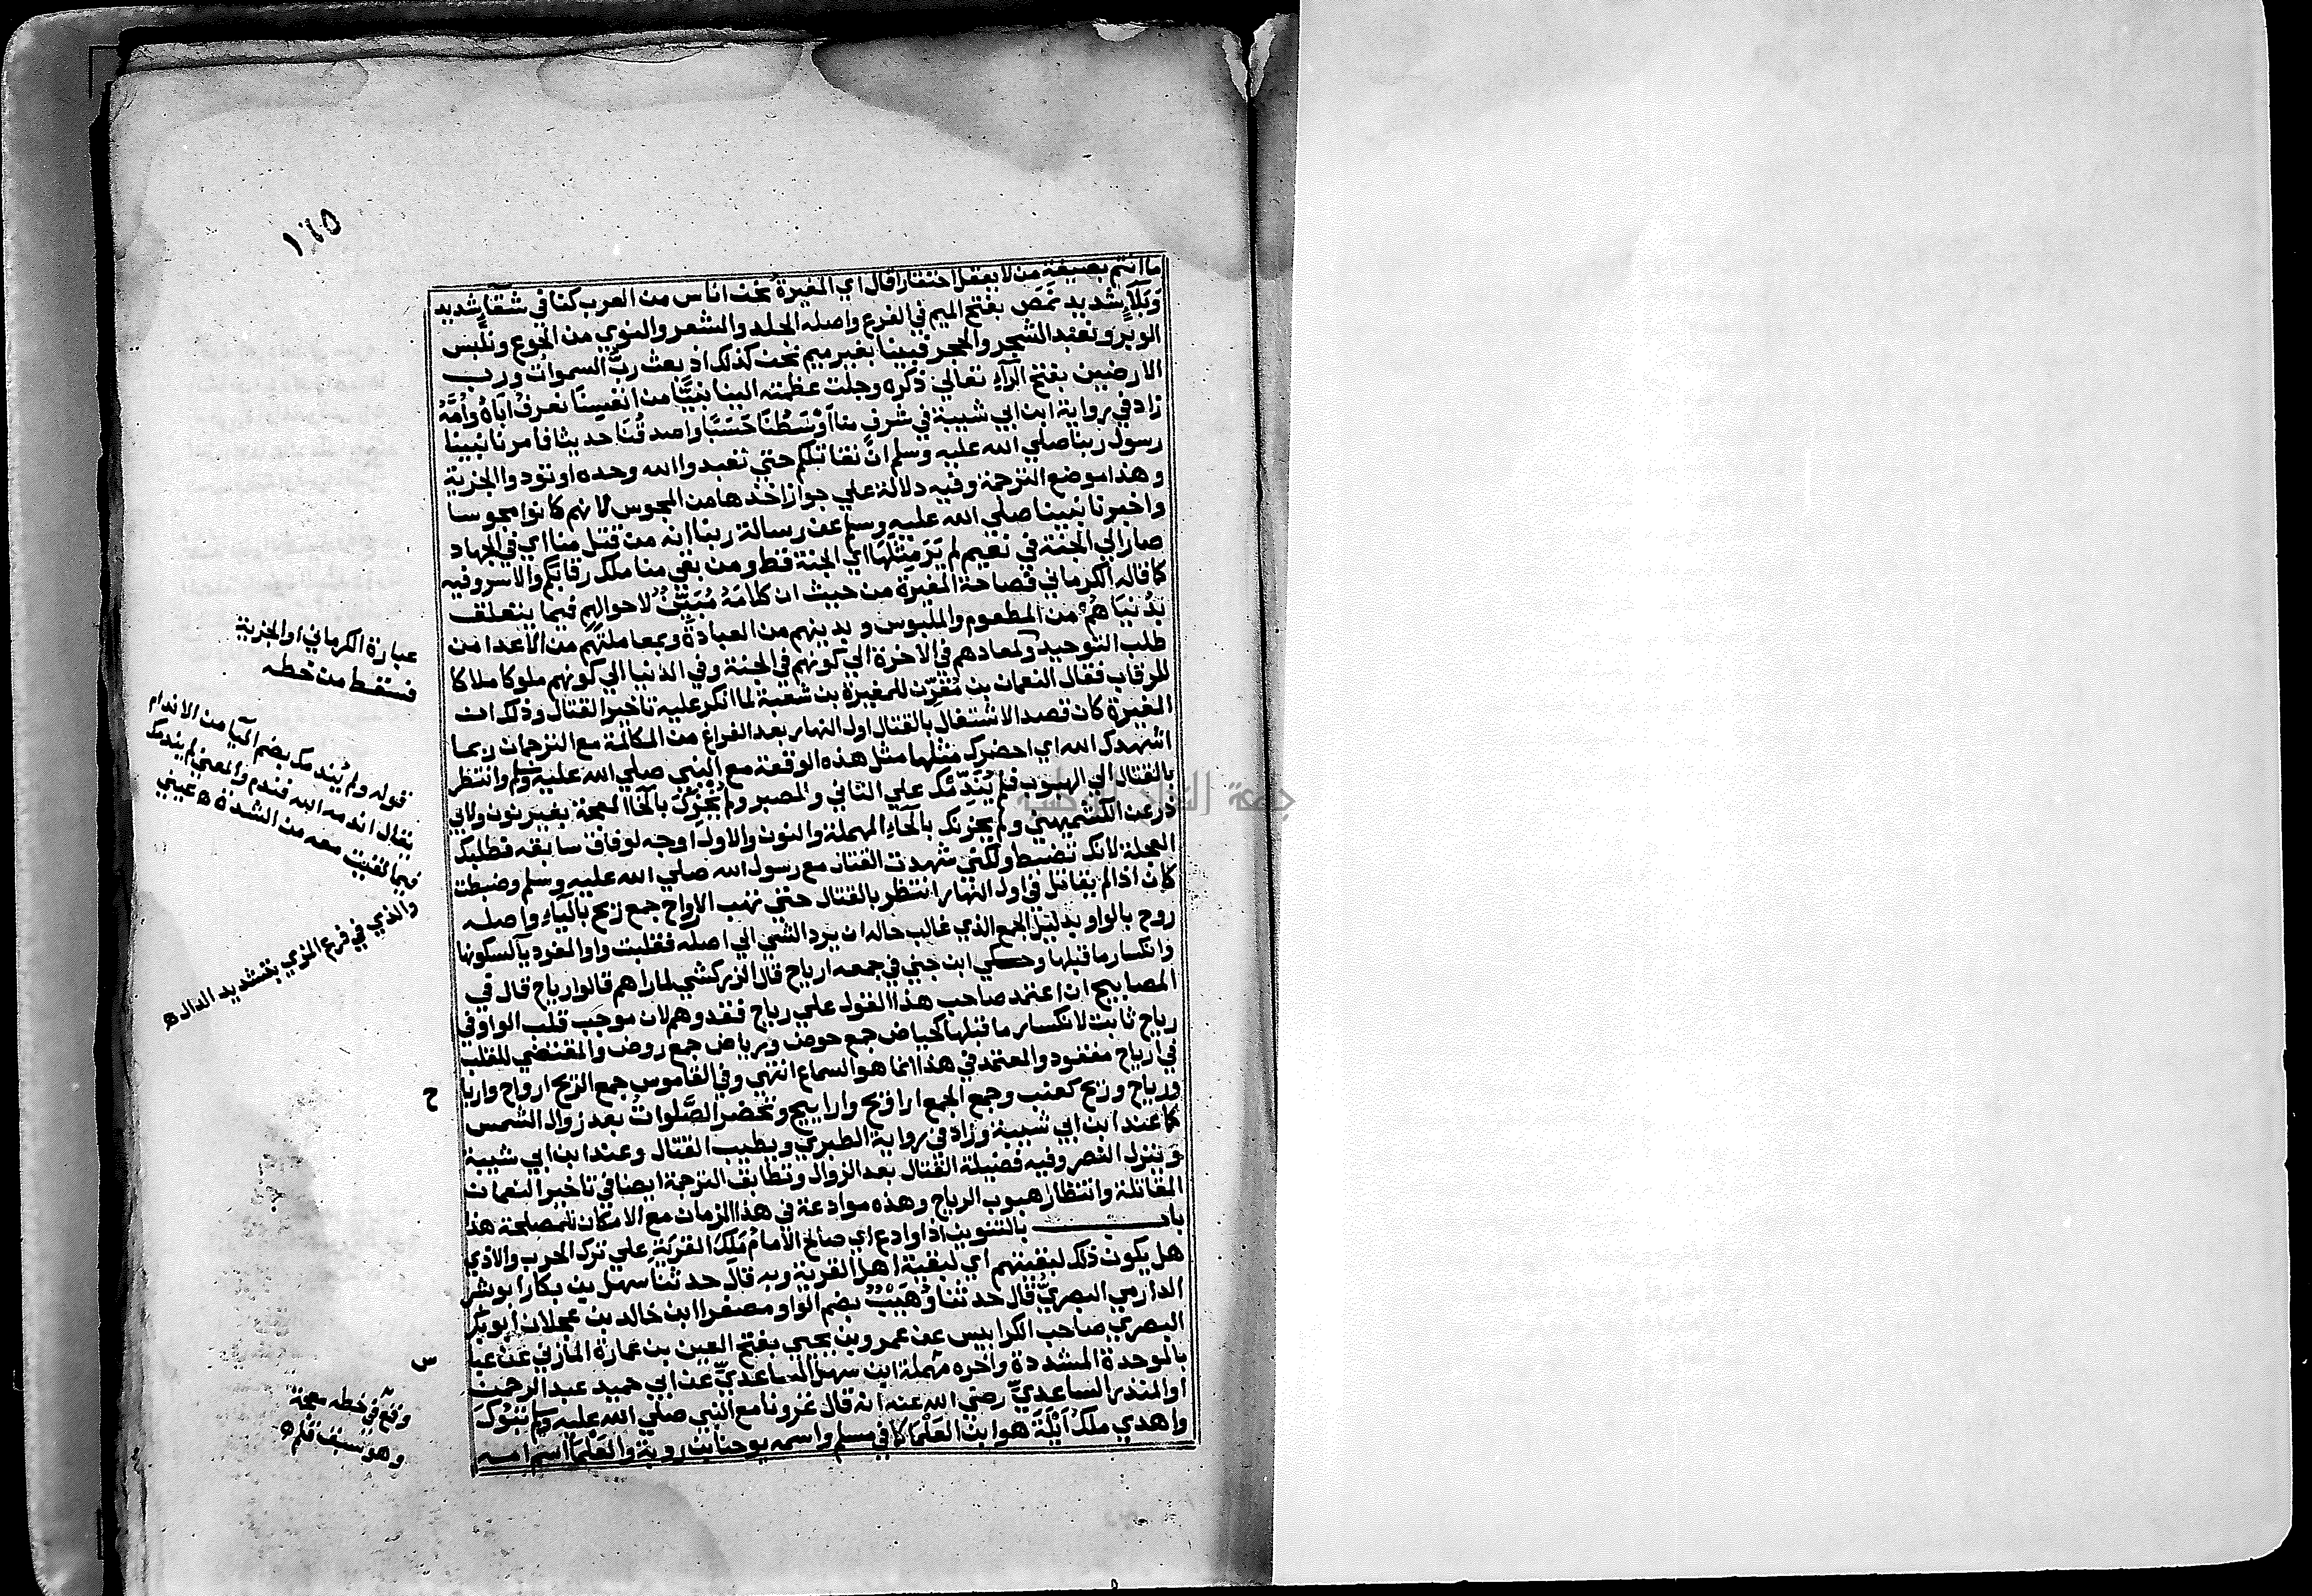 ١٦٥
ما انتم بصيغة من لا يعقل احتقارا قال اي المغيرة نحن اناس من العرب كنا في شقآءٍ شديد
وبَلَآءٍ شديد نَمَصّ بفتح الميم في الفرع واصله الجلد والشعر والنوي من الجوع ونَلْبس
الوبر و نعبد الشجر والحجر فبينا بغير ميم نحن كذلك اذ بعث ربُّ السموات ورَب
الارضين بفتح الرآءِ تعالي ذكره وجلت عظمته الينا نبيًّا من انفسِنَا نعرف اَبَاهُ وَاُمَّهُ
زاد في رواية ابن ابي شيبة في شرفٍ منا اَوْسَطُنَا حَسَبًا واصدقُنَا حديثا فامرنا نبينا
رسول ربنا صلي الله عليه وسلم ان نقاتلكم حتي تعبدوا الله وحده او تودوا الجزية
وهذا موضع الترجمة وفيه دلالة علي جواز اخذها من المجوس لانهم كانوا مجوسا
واخبرنا نبينا صلي الله عليه وسلم عن رسالة ربنا انه من قتل منا اي في الجهاد
صار الي الجنة في نعيم لم يَرَ مِثْلَهَا اي الجنة قط ومن بقي منا ملك رقابكم والاسر وفيه
كما قاله الكرماني فصاحة المغيرة من حيث ان كلامَهُ مُبَيِّنٌ لاحوالهم فيما يتعلق
بدُنيَاهُمْ من المطعوم والملبوس وبدينهم من العبادة وبمعاملتهم من الاعدا من
طلب التوحيد ولمعادهم في الاخرة الي كونهم في الجنة وفي الدنيا الي كونهم ملوكا ملاكا
للرقاب فقال النعمان بن مُقَرِّن للمغيرة بن شعبة لما انكر عليه تاخير القتال وذلك ان
المغيرة كان قصد الاشتغال بالقتال اول النهار بعد الفراغ من المكالمة مع الترجمان ربما
اشهدك الله اي احضرك مثلها مثل هذه الوقعة مع النبي صلي الله عليه وسلم وانتظر
بالقتال الي الهبوب فلم يُنَدِّمْك علي التاني والصبر ولم يُخْزِكَ بالخا المعجمة بغير نون ولابي
ذر عن الكشميهني ولم يحزنك بالحآءِ المهملة والنون والاول اوجه لوفاق سابقه فطلبك
العجلة لانك تضبط ولكني شهدت القتال مع رسول الله صلي الله عليه وسلم وضبطت
كان اذا لم يقاتل في اول النهار انتظر بالقتال حتي تهب الارواح جمع ريح باليآءِ واصله
روح بالواو بدليل الجمع الذي غالب حاله ان يرد الشي الي اصله فقلبت واو المفرد يآ لسكونها
وانكسار ما قبلها وحكي ابن جني في جمعه ارياح قال الزركشي لما راهم قالوا رياح قال في
المصابيح ان اعتمد صاحب هذا القول علي رياح فقد وهم لان موجب قلب الواو في
رياح ثابت لانكسار ما قبلها كحياض جمع حوض ورياض جمع روض والمقتضي للقلب
في ارياح مفقود والمعتمد في هذا انما هو السماع انتهي وفي القاموس جمع الريح ارواح واريا
ح
ورياح وريح كعنب وجمع الجمع اراويح واراييح وتحضر الصَّلوات بعد زوال الشمس
كما عند ابن ابي شيبة وزاد في رواية الطبري ويطيب القتال وعند ابن ابي شيبة
وينزل النصر وفيه فضيلة القتال بعد الزوال وتطابق الترجمة ايضا في تاخير النعمان
المقاتلة وانتظار هبوب الرياح وهذه موادعة في هذا الزمان مع الامكان للمصلحة هذا
باب بالتنوين اذا وادع اي صالح الامامُ مَلِكَ القَرْيَةِ علي ترك الحرب والاذي
هل يكون ذلك لبقيتهم اي لبقية اهل القرية وبه قال حدثنا سهل بن بكار ابو بشر
الدارمي البصريُّ قال حدثنا وُهَيْبٌ بضم الواو مصغرا ابن خالد بن عجلان ابو بكر
البصري صاحب الكرابيس عن عمرو بن يحيي بفتح العين بن عمارة المازني عن عبا
س
بالموحدة المشددة واخره مهملة ابن سهل الساعديِّ عن ابي حميد عبد الرحمن
او المنذر الساعديِّ رضي الله عنه انه قال غزونا مع النبي صلي الله عليه وسلم تبوكَ
واهدي ملك اَيْلَةَ هو ابن العَلْمَآ كما في مسلم واسمه يوحنا بن روبة والعَلْمَآ اسم امه
عبارة الكرماني او الجزية
فسقط من خطه
قوله ولم يُندمك بضم اليآ من الاندام
يقال اندمه الله فندم والمعني لم يندمك
فيما لقيت معه من الشدة ه عيني
والذي في فرع المزي بتشديد الدال ه
وقع في خطه معجمة
وهو سبق قلم ه
جمعة الماجد